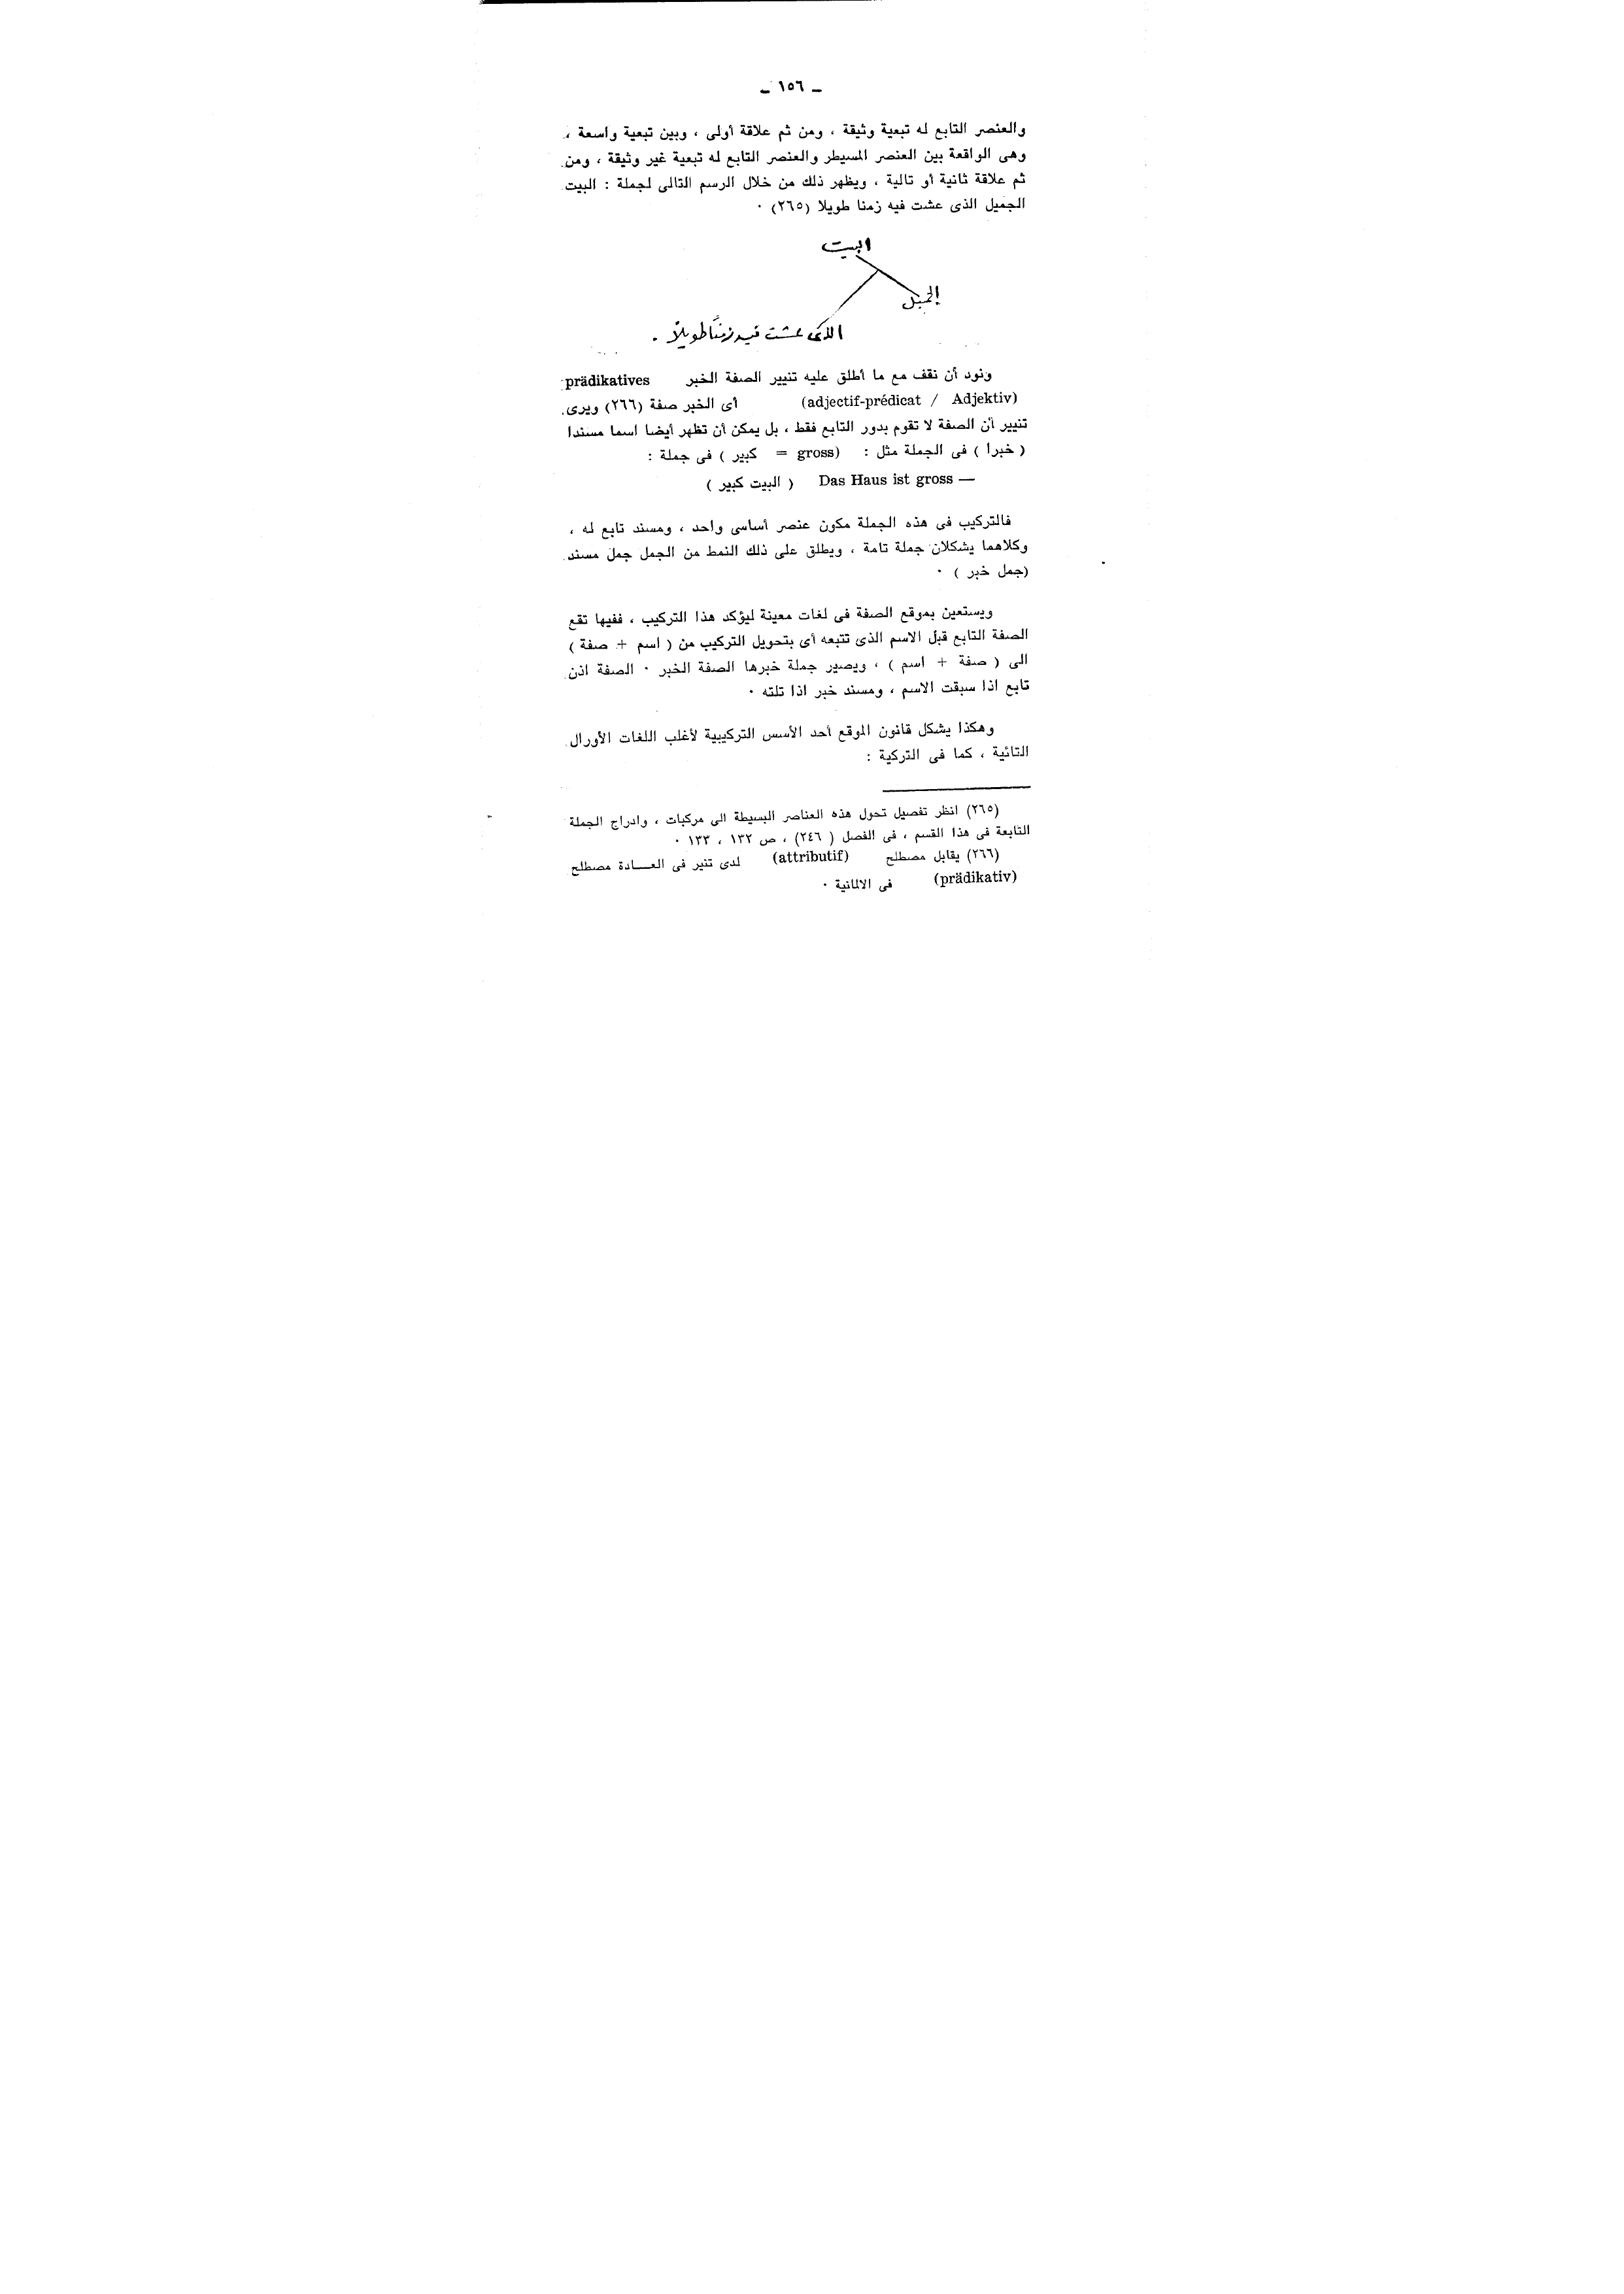 ـ ١٥٦ ـ
والعنصر التابع له تبعية وثيقة ، ومن ثم علاقة أولى ، وبين تبعية واسعة ،
وهى الواقعة بين العنصر المسيطر والعنصر التابع له تبعية غير وثيقة ، ومن
ثم علاقة ثانية أو تالية ، ويظهر ذلك من خلال الرسم التالى لجملة : البيت
الجميل الذى عشت فيه زمنا طويلا (٢٦٥) ٠
البيت
الجميل
الذى عشت فيه زمنًا طويلاً .
ونود أن نقف مع ما أطلق عليه تنيير الصفة الخبر prädikatives
(adjectif-prédicat / Adjektiv) أى الخبر صفة (٢٦٦) ويرى
تنيير أن الصفة لا تقوم بدور التابع فقط ، بل يمكن أن تظهر أيضا اسما مسندا
( خبرا ) فى الجملة مثل : (gross = كبير ) فى جملة :
— Das Haus ist gross ( البيت كبير )
فالتركيب فى هذه الجملة مكون عنصر أساسى واحد ، ومسند تابع له ،
وكلاهما يشكلان جملة تامة ، ويطلق على ذلك النمط من الجمل جمل مسند
(جمل خبر ) ٠
ويستعين بموقع الصفة فى لغات معينة ليؤكد هذا التركيب ، ففيها تقع
الصفة التابع قبل الاسم الذى تتبعه أى بتحويل التركيب من ( اسم + صفة )
الى ( صفة + اسم ) ، ويصير جملة خبرها الصفة الخبر ٠ الصفة اذن
تابع اذا سبقت الاسم ، ومسند خبر اذا تلته ٠
وهكذا يشكل قانون الموقع أحد الأسس التركيبية لأغلب اللغات الأورال
التائية ، كما فى التركية :
(٢٦٥) انظر تفصيل تحول هذه العناصر البسيطة الى مركبات ، وادراج الجملة
التابعة فى هذا القسم ، فى الفصل ( ٢٤٦) ، ص ١٣٢ ، ١٣٣ ٠
(٢٦٦) يقابل مصطلح (attributif) لدى تنير فى العــادة مصطلح
(prädikativ) فى الالمانية ٠